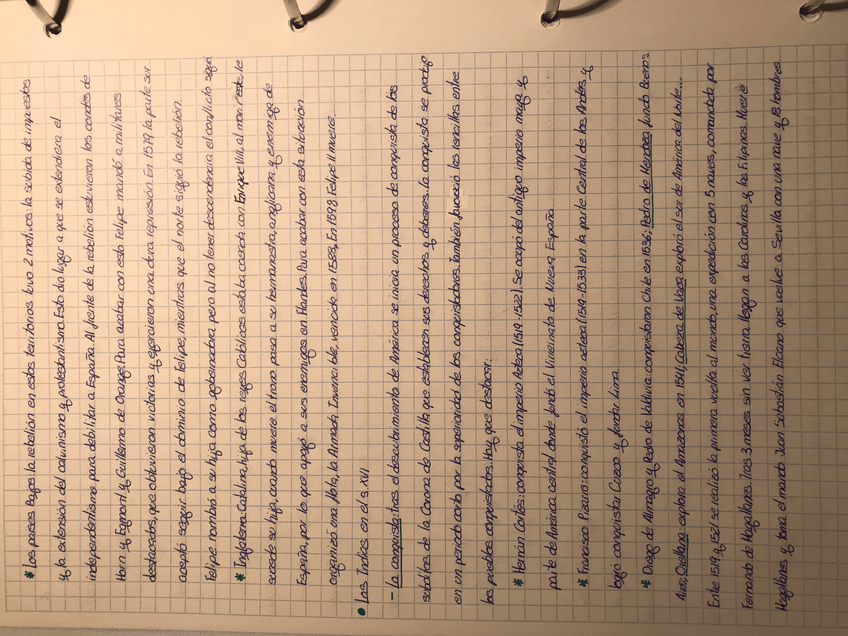 * Los países Bajos la rebelión en estos territorios tuvo 2 motivos la subida de impuestos
y la extensión del calvinismo y protestantismo. Esto dio lugar a que se extendiera el
independentismo para debilitar a España. Al frente de la rebelión estuvieron los condes de
Horn y Egmond y Guillermo de Orange. Para acabar con esto Felipe mandó a militares
destacados, que obtuvieron victorias y ejercieron una dura represión. En 1579 la parte sur
acepto seguir bajo el dominio de Felipe, mientras que el norte siguió la rebelión.
Felipe nombró a su hija como gobernadora, pero al no tener descendencia el conflicto siguió
* Inglaterra. Catalina, hija de los reyes Católicos estaba casada con Enrique VIII, al morir este le
sucede su hija, cuando muere el trono pasa a su hermanastra, anglicana y enemiga de
España, por lo que apoyó a sus enemigos en Flandes. Para acabar con esta situación
organizó una flota, la Armada Invencible, vencida en 1588. En 1598 Felipe II muere.
• Las Indias en el s. XVI
- La conquista: tras el descubrimiento de América se inicia un proceso de conquista de los
subditos de la Corona de Castilla que establecen sus derechos y deberes. La conquista se produjo
en un periodo corto por la superioridad de los conquistadores, también favoreció las rencillas entre
los pueblos conquistados. Hay que destacar:
* Hernán Cortés: conquista el imperio Azteca (1519-1522). Se ocupó del antiguo imperio maya y
parte de América central donde fundó el Virreinato de Nueva España
* Francisco Pizarro: conquistó el imperio azteca (1519-1533) en la parte Central de los Andes y
logró conquistar Cuzco y fundar Lima.
* Diego de Almagro y Pedro de Valdivia conquistaron Chile en 1536; Pedro de Mendoza fundó Buenos
Aires; Orellana: explora el Amazonas en 1541, Cabeza de Vaca exploró el sur de América del Norte...
Entre 1519 y 1521 se realizó la primera vuelta al mundo, una expedición con 5 naves, comandada por
Fernando de Magallanes. Tras 3 meses sin ver tierra llegan a las Carolinas y las Filipinas. Muere
Magallanes y toma el mando Juan Sebastián Elcano que vuelve a Sevilla con una nave y 18 hombres